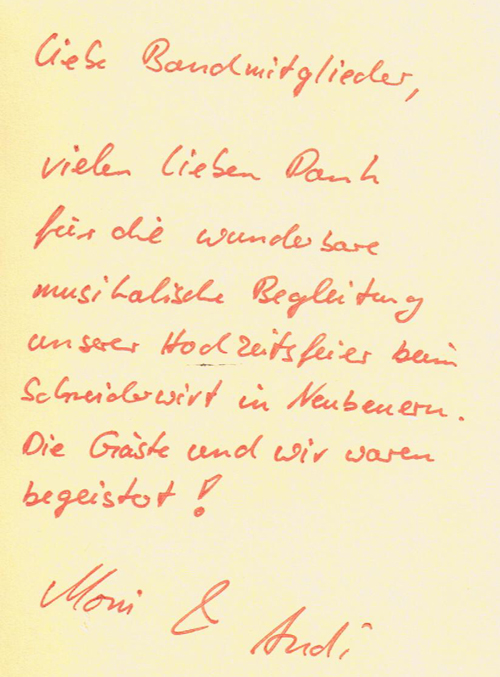 Liebe Bandmitglieder,
vielen lieben Dank
für die wunderbare
musikalische Begleitung
unserer Hochzeitsfeier beim
Schneiderwirt in Neubeuern.
Die Gäste und wir waren
begeistert!
Moni & Andi